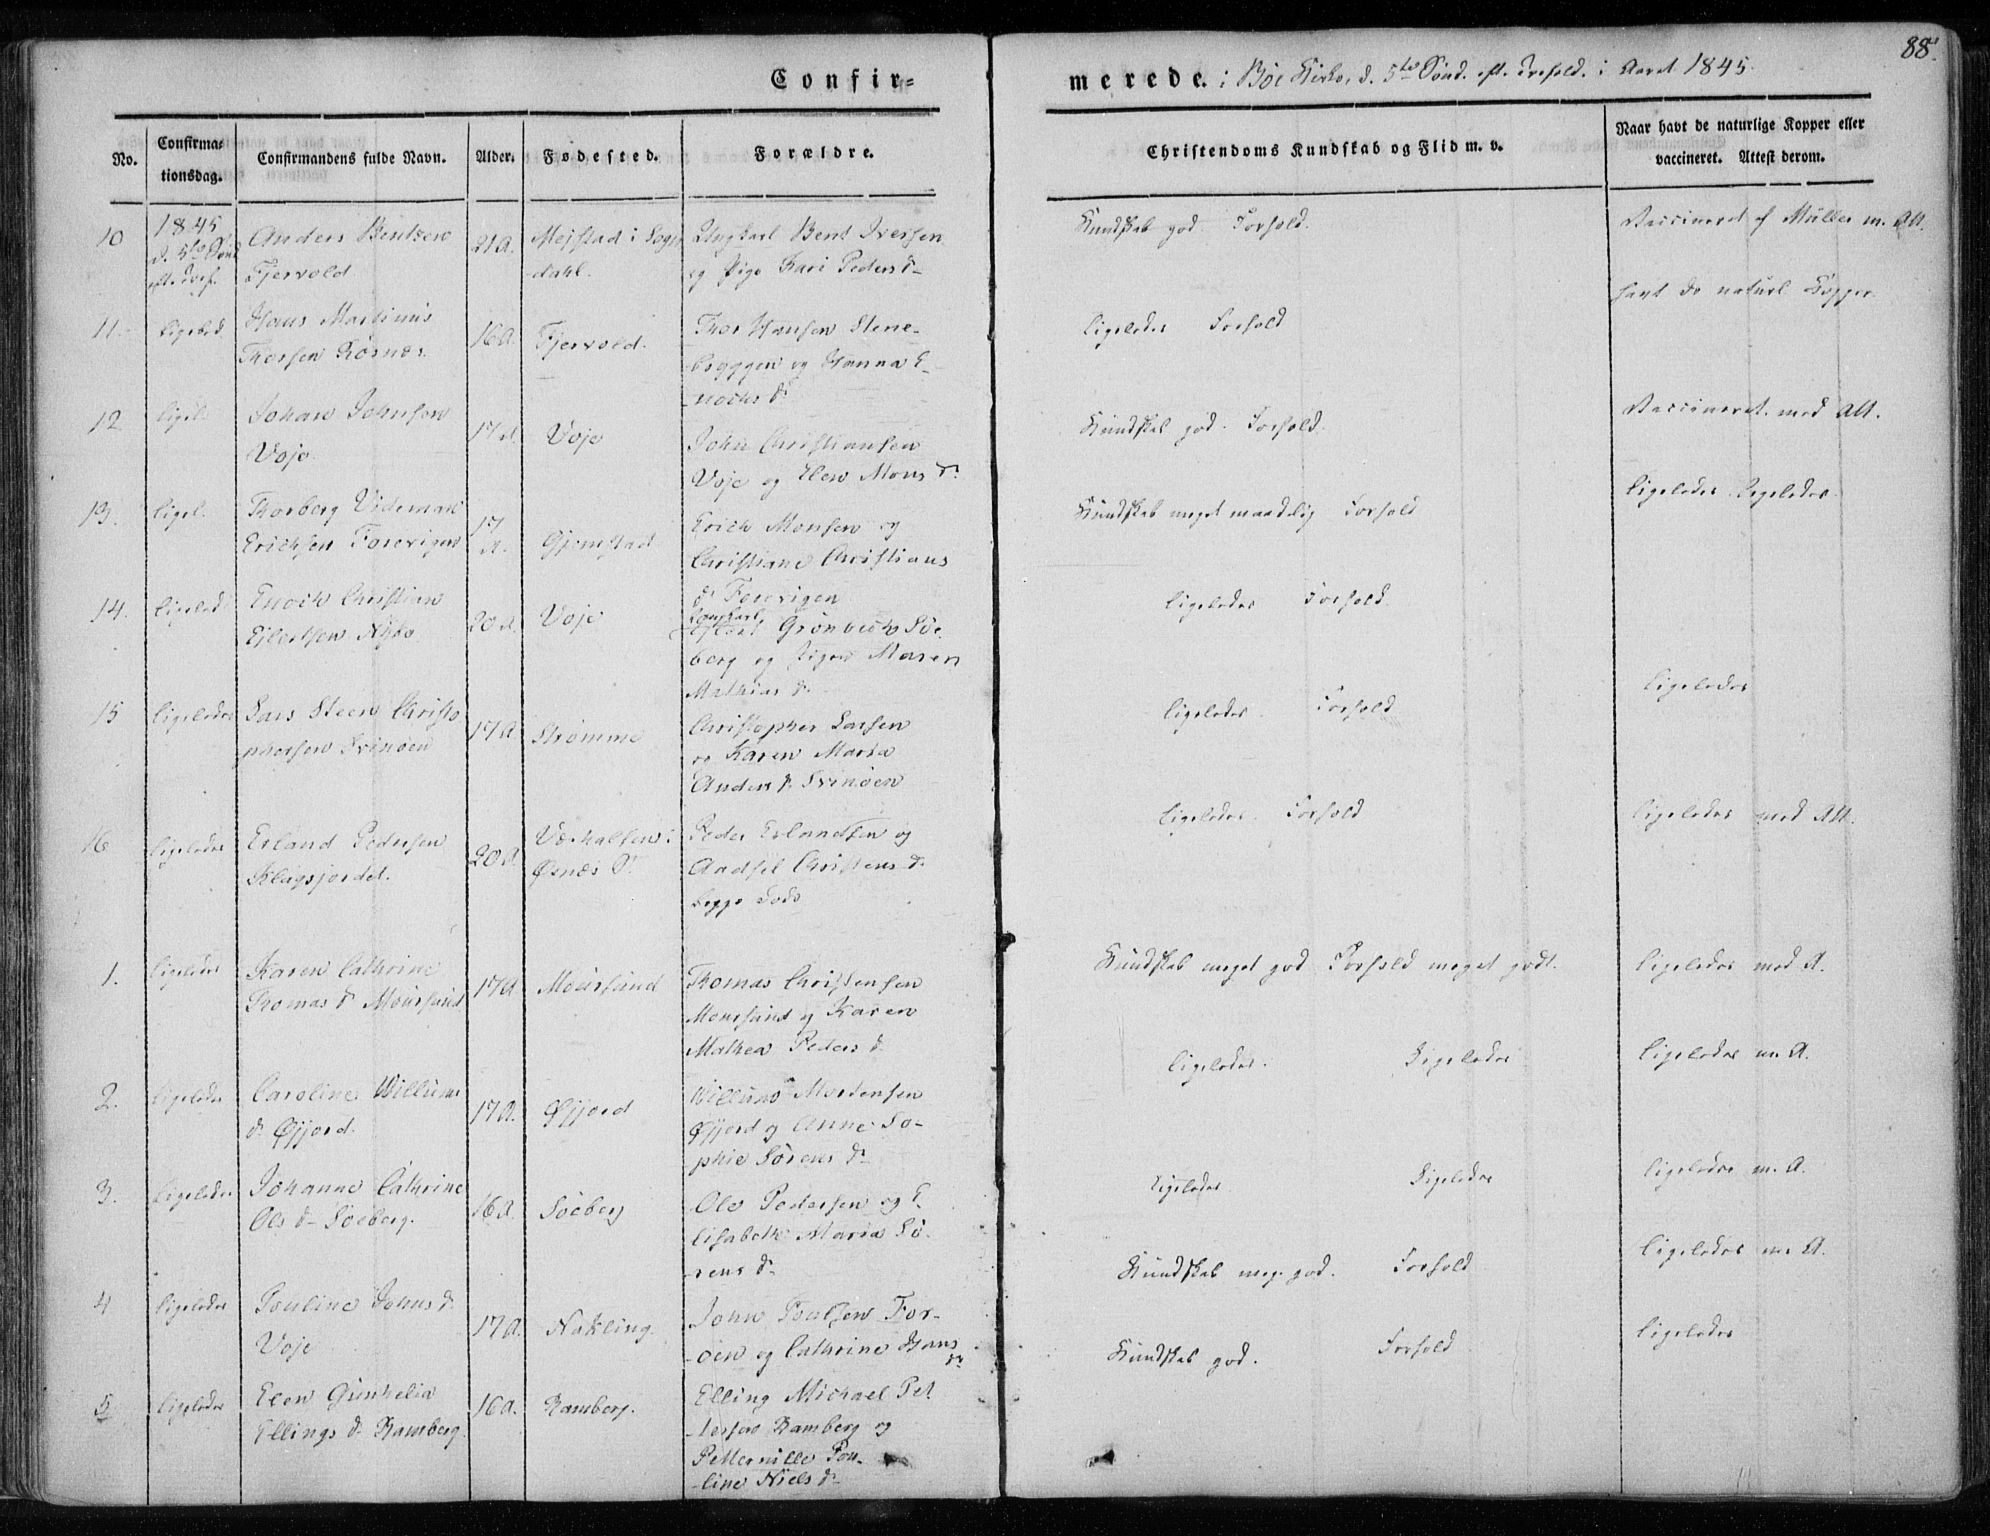 88.
Confir=
merede. i Bøe Kirke, d. 5te Sønd. eft. Trefold. i Aaret 1845.
No.
Confirma=
tionsdag.
Confirmandens fulde Navn.
Alder.
Fødested.
Forældre.
Christendoms Kundskab og Flid m. v.
Naar havt de naturlige Kopper eller
vaccineret. Attest derom.
10
1845
d. 5te Sønd
eft. Tref.
Anders Bentsen
Fjervold
21 A.
Mejstad i Sogn
dahl.
Ungkarl Bent Iversen
og Pige Kari Peders d.
Kundskab god. Forhold.
Vaccineret af Müller m. Att.
11.
ligeled
Hans Martinus
Thorsen Rørnæs.
16 A
Fjervold.
Thor Hansen Stene-
byggen og Hanna E-
nochs d.
ligeledes Forhold
havt de naturl. Kopper.
12
ligel.
Johan Johnsen
Voje
17 A.
Voje
John Christiansen
Voje og Elen Mons d.
Kundskab god. Forhold.
Vaccineret. med Att.
13.
ligel.
Thorberg Videman
Erichsen Forevigen
17
A.
Gjemstad
Erich Monsen og
Christiane Christians
d. Forevigen
Kundskab meget maadelig Forhold
ligeledes. ligeledes.
14.
ligeled
Enoch Christian
Ejlertsen Nykv
20 A.
Voje
Ungkarl
Ejlert Grønbech Søe
berg og Pigen Maren
Mathias d.
ligeledes Forhold.
15
ligeledes
Lars Steen Christo
phersen Svinøen
17 A.
Strømme
Christopher Larsen
og Karen Maria
Anders d. Svinøen
ligeledes. Forhold
ligeledes
16
ligeledes
Erland Pedersen
Klagsjordet.
20 A.
i
Øsnæs Pr.
Peder Erlandsen og
Andsel Christens d.
begge Døde
ligeledes. Forhold
ligeledes med Att.
1.
ligeledes
Karen Cathrine
Thomas d. Moursund
17 A
Moursund
Thomas Christensen
Moursund og Karen
Mathea Peders d.
Kundskab meget god Forhold meget godt.
ligeledes med A.
2.
ligeledes
Caroline Willums
d. Øjjord.
17 A.
Øjjord
Willum Mortensen
Øjjord og Anne So-
phie Sørens d.
ligeledes. Ligeledes
ligeledes m. A.
3.
ligeledes
Johanne Cathrine
Ols d. Søeberg.
16 A.
Søeberg
Ole Pedersen og E
lisabeth Maria Sø-
rens d.
Ligeledes Ligeledes
ligeledes m. A.
4
ligeledes
Pouline Johns d.
Voje
17 A.
Nakling.
John Poulsen For-
øen og Cathrine Hans
dr
Kundskab meg. god. Forhold
ligeledes m. A.
5
ligeledes
Elen Gunhelia
Ellings d. Ramberg.
16 A.
Ramberg.
Elling Michael Pet
tersen Ramberg og
Petternille Pou-
line Niels d.
Kundskab god. Forhold
ligeledes